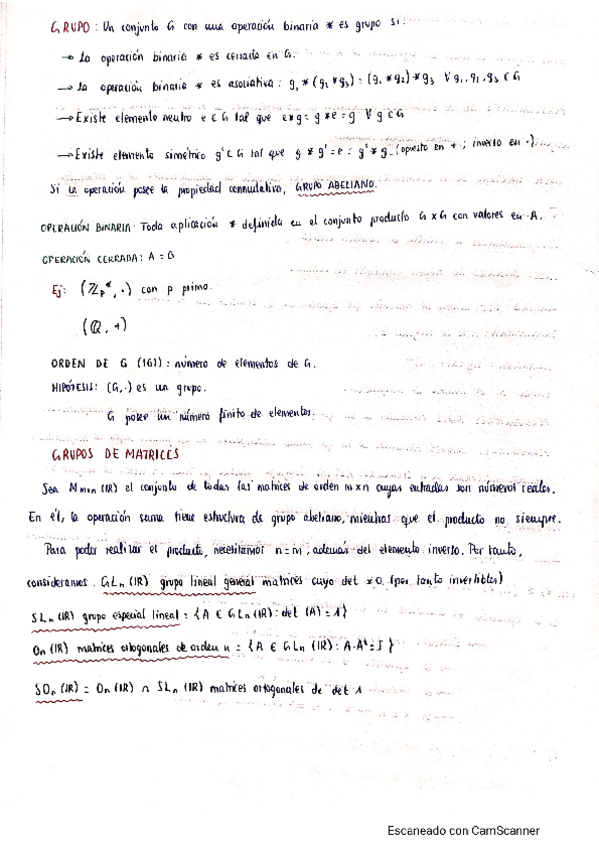 GRUPO: Un conjunto G con una operación binaria * es grupo si:
→ La operación binaria * es cerrada en G.
→ La operación binaria * es asociativa: g₁ * (g₂ * g₃) = (g₁ * g₂) * g₃ ∀ g₁, g₂, g₃ ∈ G
→ Existe elemento neutro e ∈ G tal que e * g = g * e = g ∀ g ∈ G
→ Existe elemento simétrico g' ∈ G tal que g * g' = e = g' * g (opuesto en + ; inverso en ·)
Si la operación posee la propiedad conmutativa, GRUPO ABELIANO.
OPERACIÓN BINARIA: Toda aplicación * definida en el conjunto producto G x G con valores en A.
OPERACIÓN CERRADA: A = G
Ej: (ℤp*, ·) con p primo.
(ℚ, +)
ORDEN DE G (|G|): número de elementos de G.
HIPÓTESIS: (G, ·) es un grupo.
G posee un número finito de elementos.
GRUPOS DE MATRICES
Sea Mmxn (IR) el conjunto de todas las matrices de orden m x n cuyas entradas son números reales.
En él, la operación suma tiene estructura de grupo abeliano, mientras que el producto no siempre.
Para poder realizar el producto, necesitamos n = m; además del elemento inverso. Por tanto,
consideramos. GLn (IR) grupo lineal general matrices cuyo det ≠ 0 (por tanto invertibles)
SLn (IR) grupo especial lineal = {A ∈ GLn (IR): det (A) = 1}
On (IR) matrices ortogonales de orden n = {A ∈ GLn (IR): A·Aᵗ = I}
SOn (IR) = On (IR) ∩ SLn (IR) matrices ortogonales de det 1
Escaneado con CamScanner